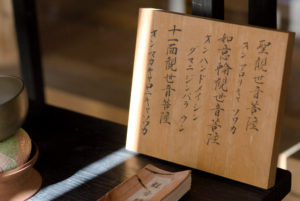 聖觀世音菩薩
オンアロリキャソワカ
如意輪觀世音菩薩
オンハンドメイシン
ダマニジンバラ ウン
十一面觀世音菩薩
オン ソワカ